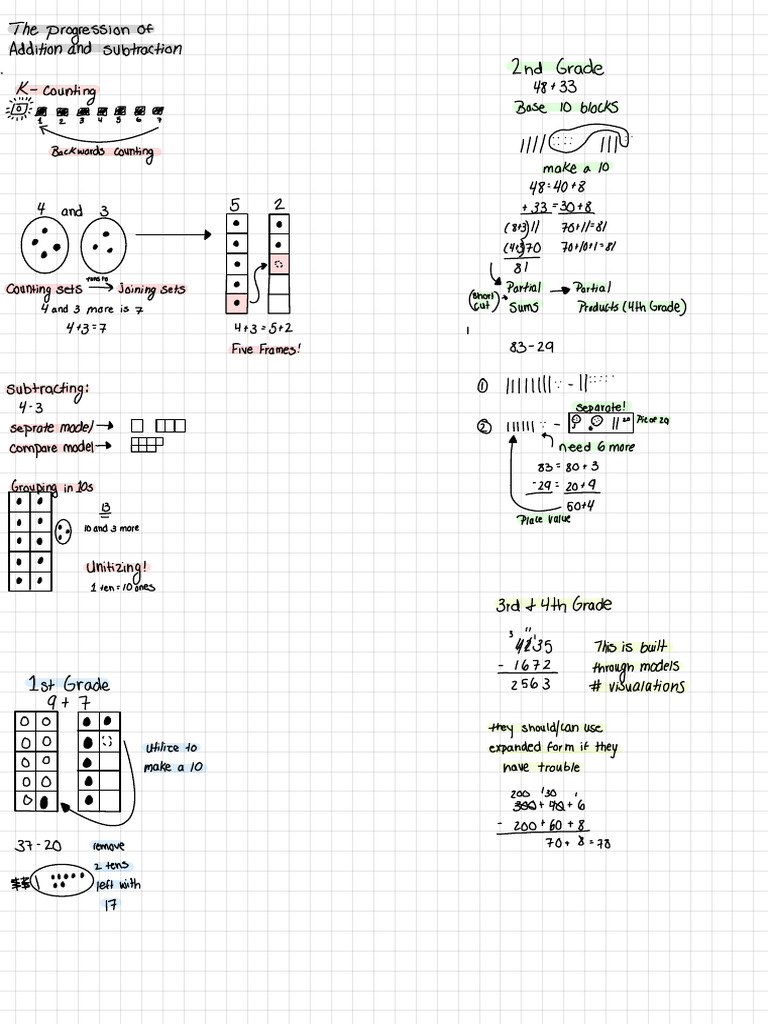 The progression of
Addition and subtraction
K- counting
0
1 2 3 4 5 6 7
Backwards counting
4 and 3
5 2
Counting sets → joining sets
4 and 3 more is 7
4+3=7
4+3=5+2
Five Frames!
Subtracting:
4-3
seprate model →
compare model →
Grouping in 10s
13
10 and 3 more
Unitizing!
1 ten = 10 ones
1st Grade
9 + 7
utilize to
make a 10
37-20
remove
2 tens
left with
17
2nd Grade
48+33
Base 10 blocks
make a 10
48=40+8
+ 33 = 30+8
(8+3) 11 70+11=81
(4+3) 70 70+10+1=81
81
(short cut) → Partial Sums → Partial Products (4th Grade)
83-29
①
separate!
② Pic of 29
need 6 more
83 = 80+3
-29 = 20+9
50+4
Place value
3rd & 4th Grade
3 11 1
4235
- 1672
2563
This is built
through models
# visualations
they should/can use
expanded form if they
have trouble
200 130 1
300 + 40 + 6
- 200 + 60 + 8
70 + 8 = 78